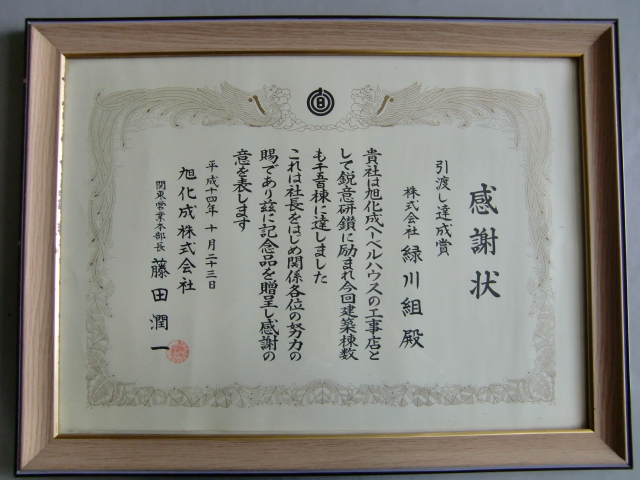 感謝状
引渡し達成賞
株式会社 緑川組 殿
貴社は旭化成ヘーベルハウスの工事店と
して鋭意研鑽に励まれ今回建築棟数
も千五百棟に達しました
これは社長をはじめ関係各位の努力の
賜であり玆に記念品を贈呈し感謝の
意を表します
平成十四年 十月二十三日
旭化成株式会社
関東営業本部長 藤田潤一